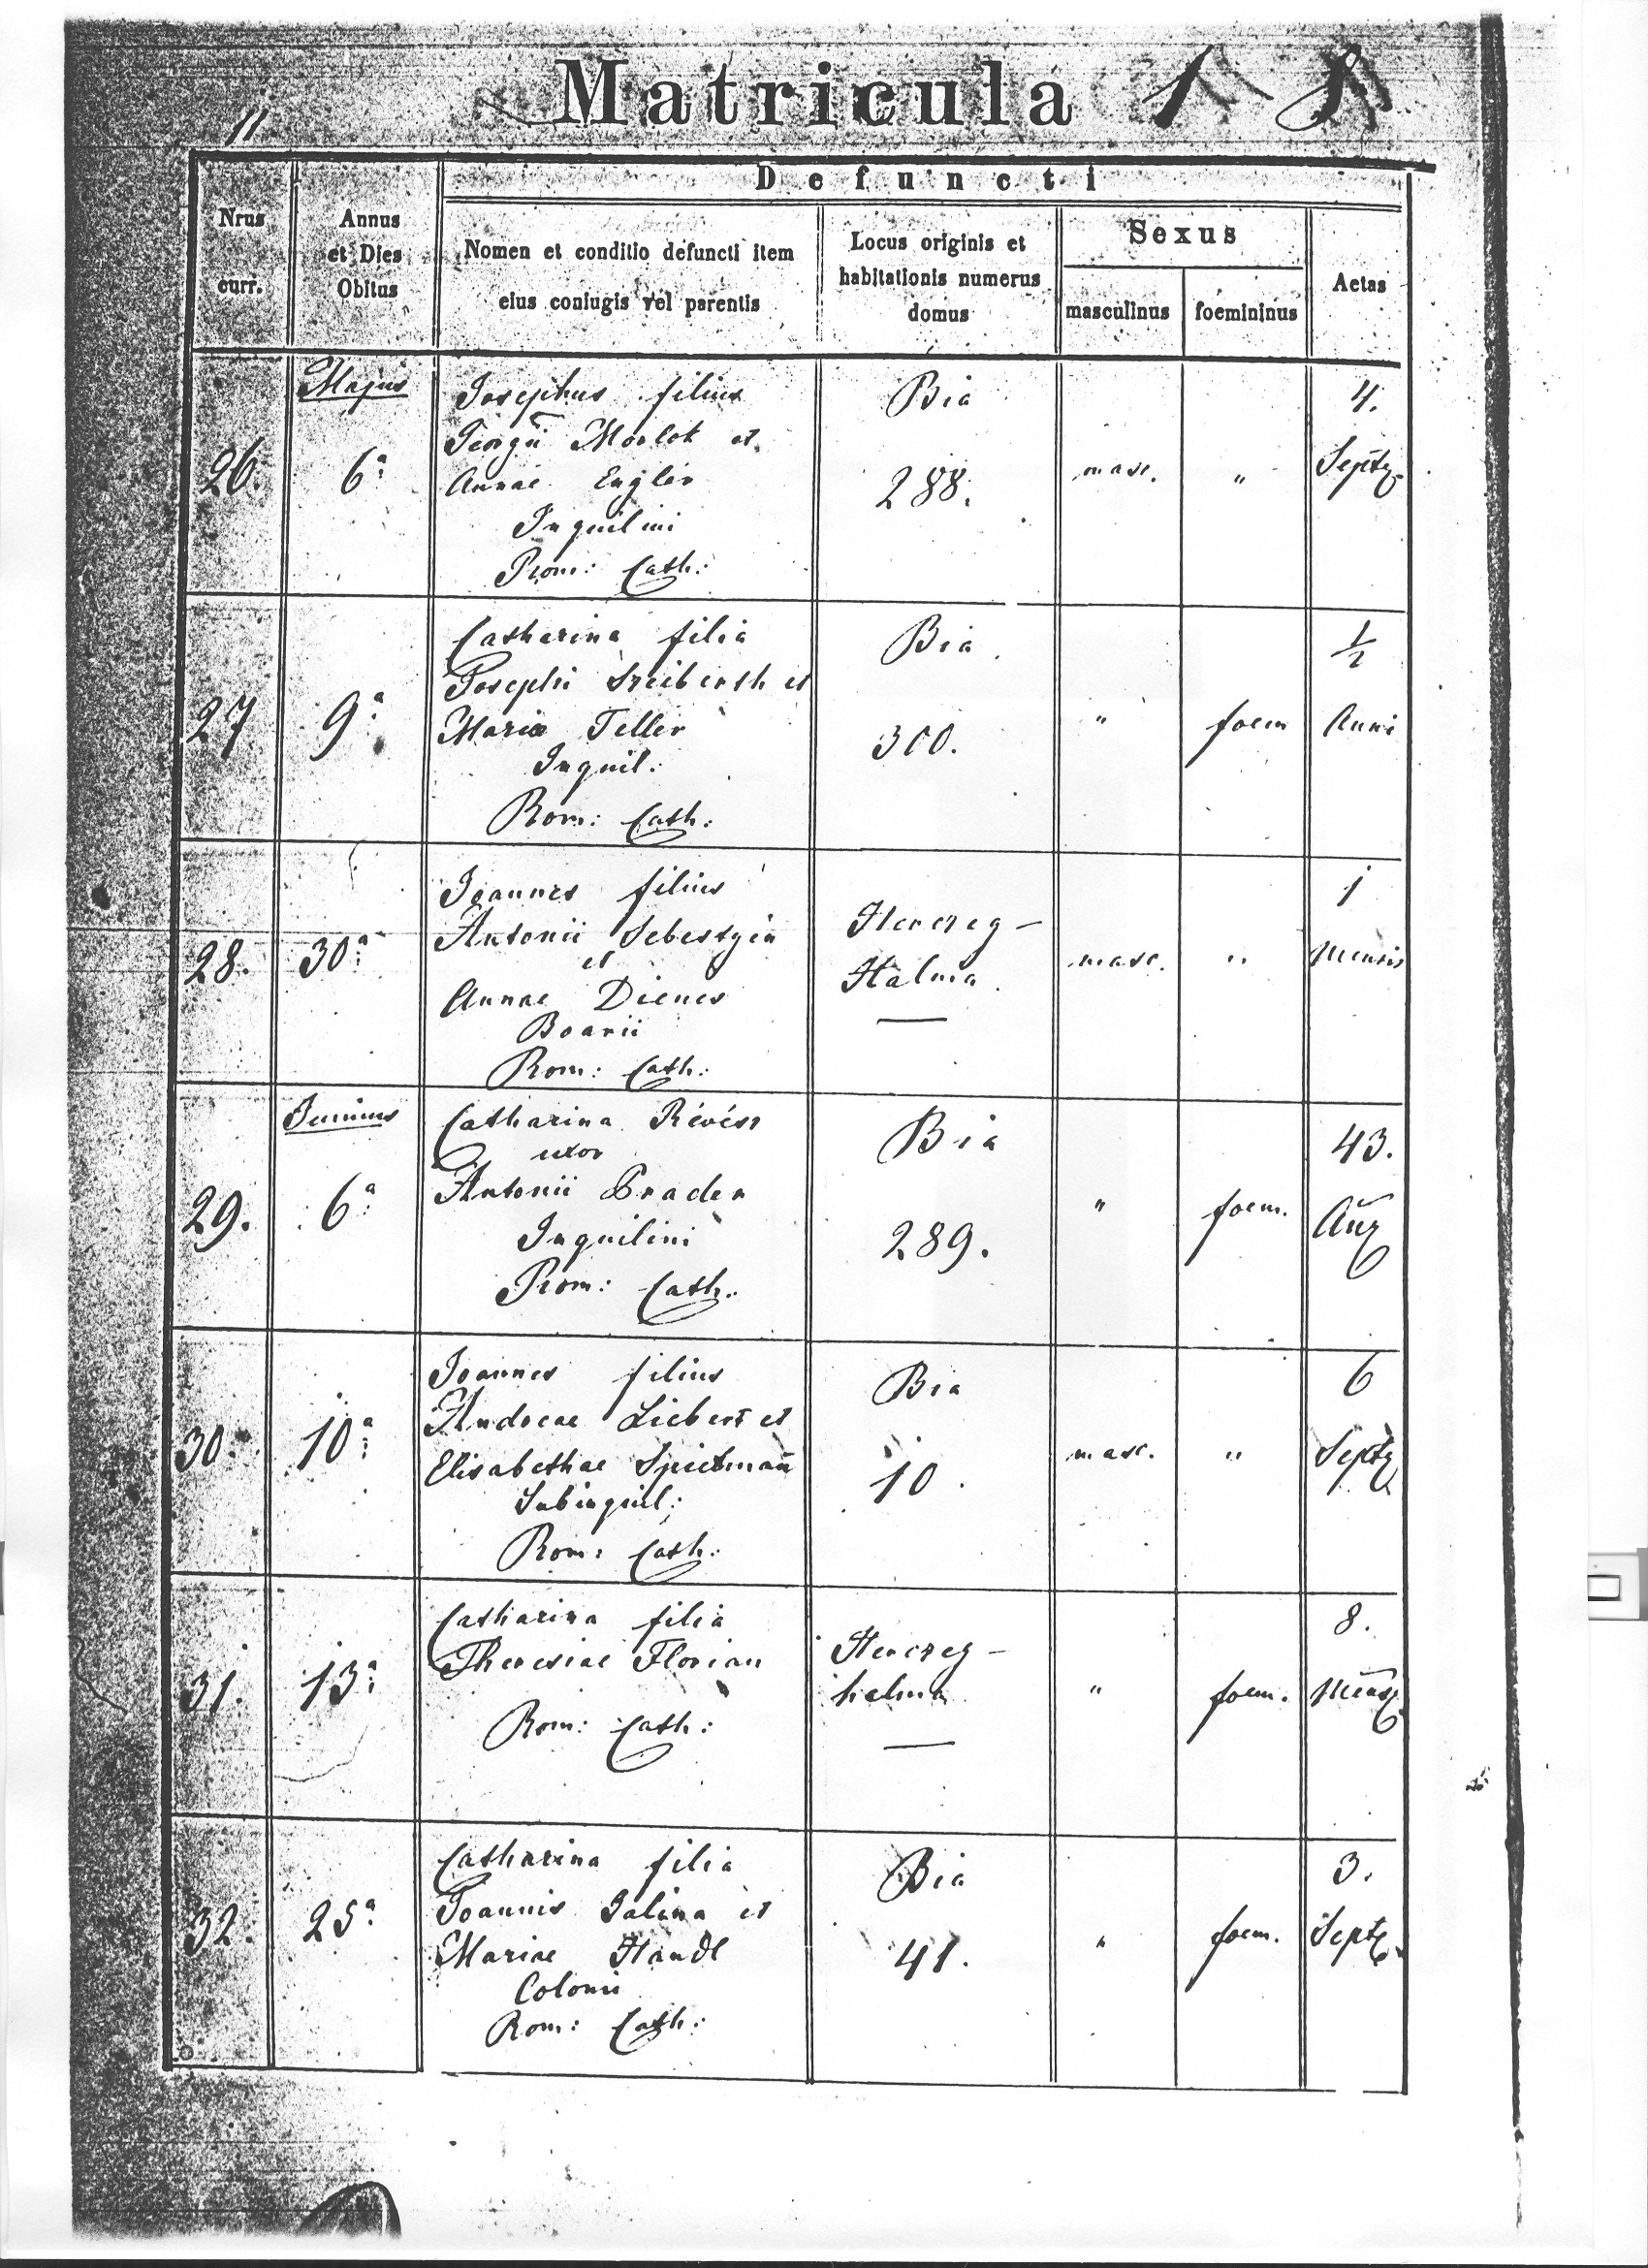 11
Matricula
Defuncti
Nrus
curr.
Annus
et Dies
Obitus
Nomen et conditio defuncti item
eius coniugis vel parentis
Locus originis et
habitationis numerus
domus
Sexus
masculinus
foemininus
Aetas
Majus
26.
6a
Josephus filius
Georgii Morlok et
Annae Engler
Inquilini
Rom: Cath:
Bia
288.
masc.
"
4.
Septg
27
9a
Catharina filia
Josephi Szeiberth et
Mariae Feller
Inquil:
Rom: Cath:
Bia
300.
"
foem
1/2
Anni
28.
30a
Joannes filius
Antonii Sebestyén
et
Annae Dienes
Boarii
Rom: Cath:
Herczeg-
Halma
masc.
"
1
Mensis
Junius
29.
6a
Catharina Révész
uxor
Antonii
Inquilini
Rom: Cath:
Bia
289.
"
foem.
43.
30.
10a
Joannes filius
Andreae Liebert et
Elisabethae Spielmann
Subinquil:
Rom: Cath:
Bia
10.
masc.
"
6
Septg
31.
13a
Catharina filia
Theresiae Florian
Rom: Cath:
Herczeg-
halma
"
foem.
8.
Mens
32.
25a
Catharina filia
Joannis Galina et
Mariae Handl
Coloni
Rom: Cath:
Bia
41.
"
foem.
3.
Septg